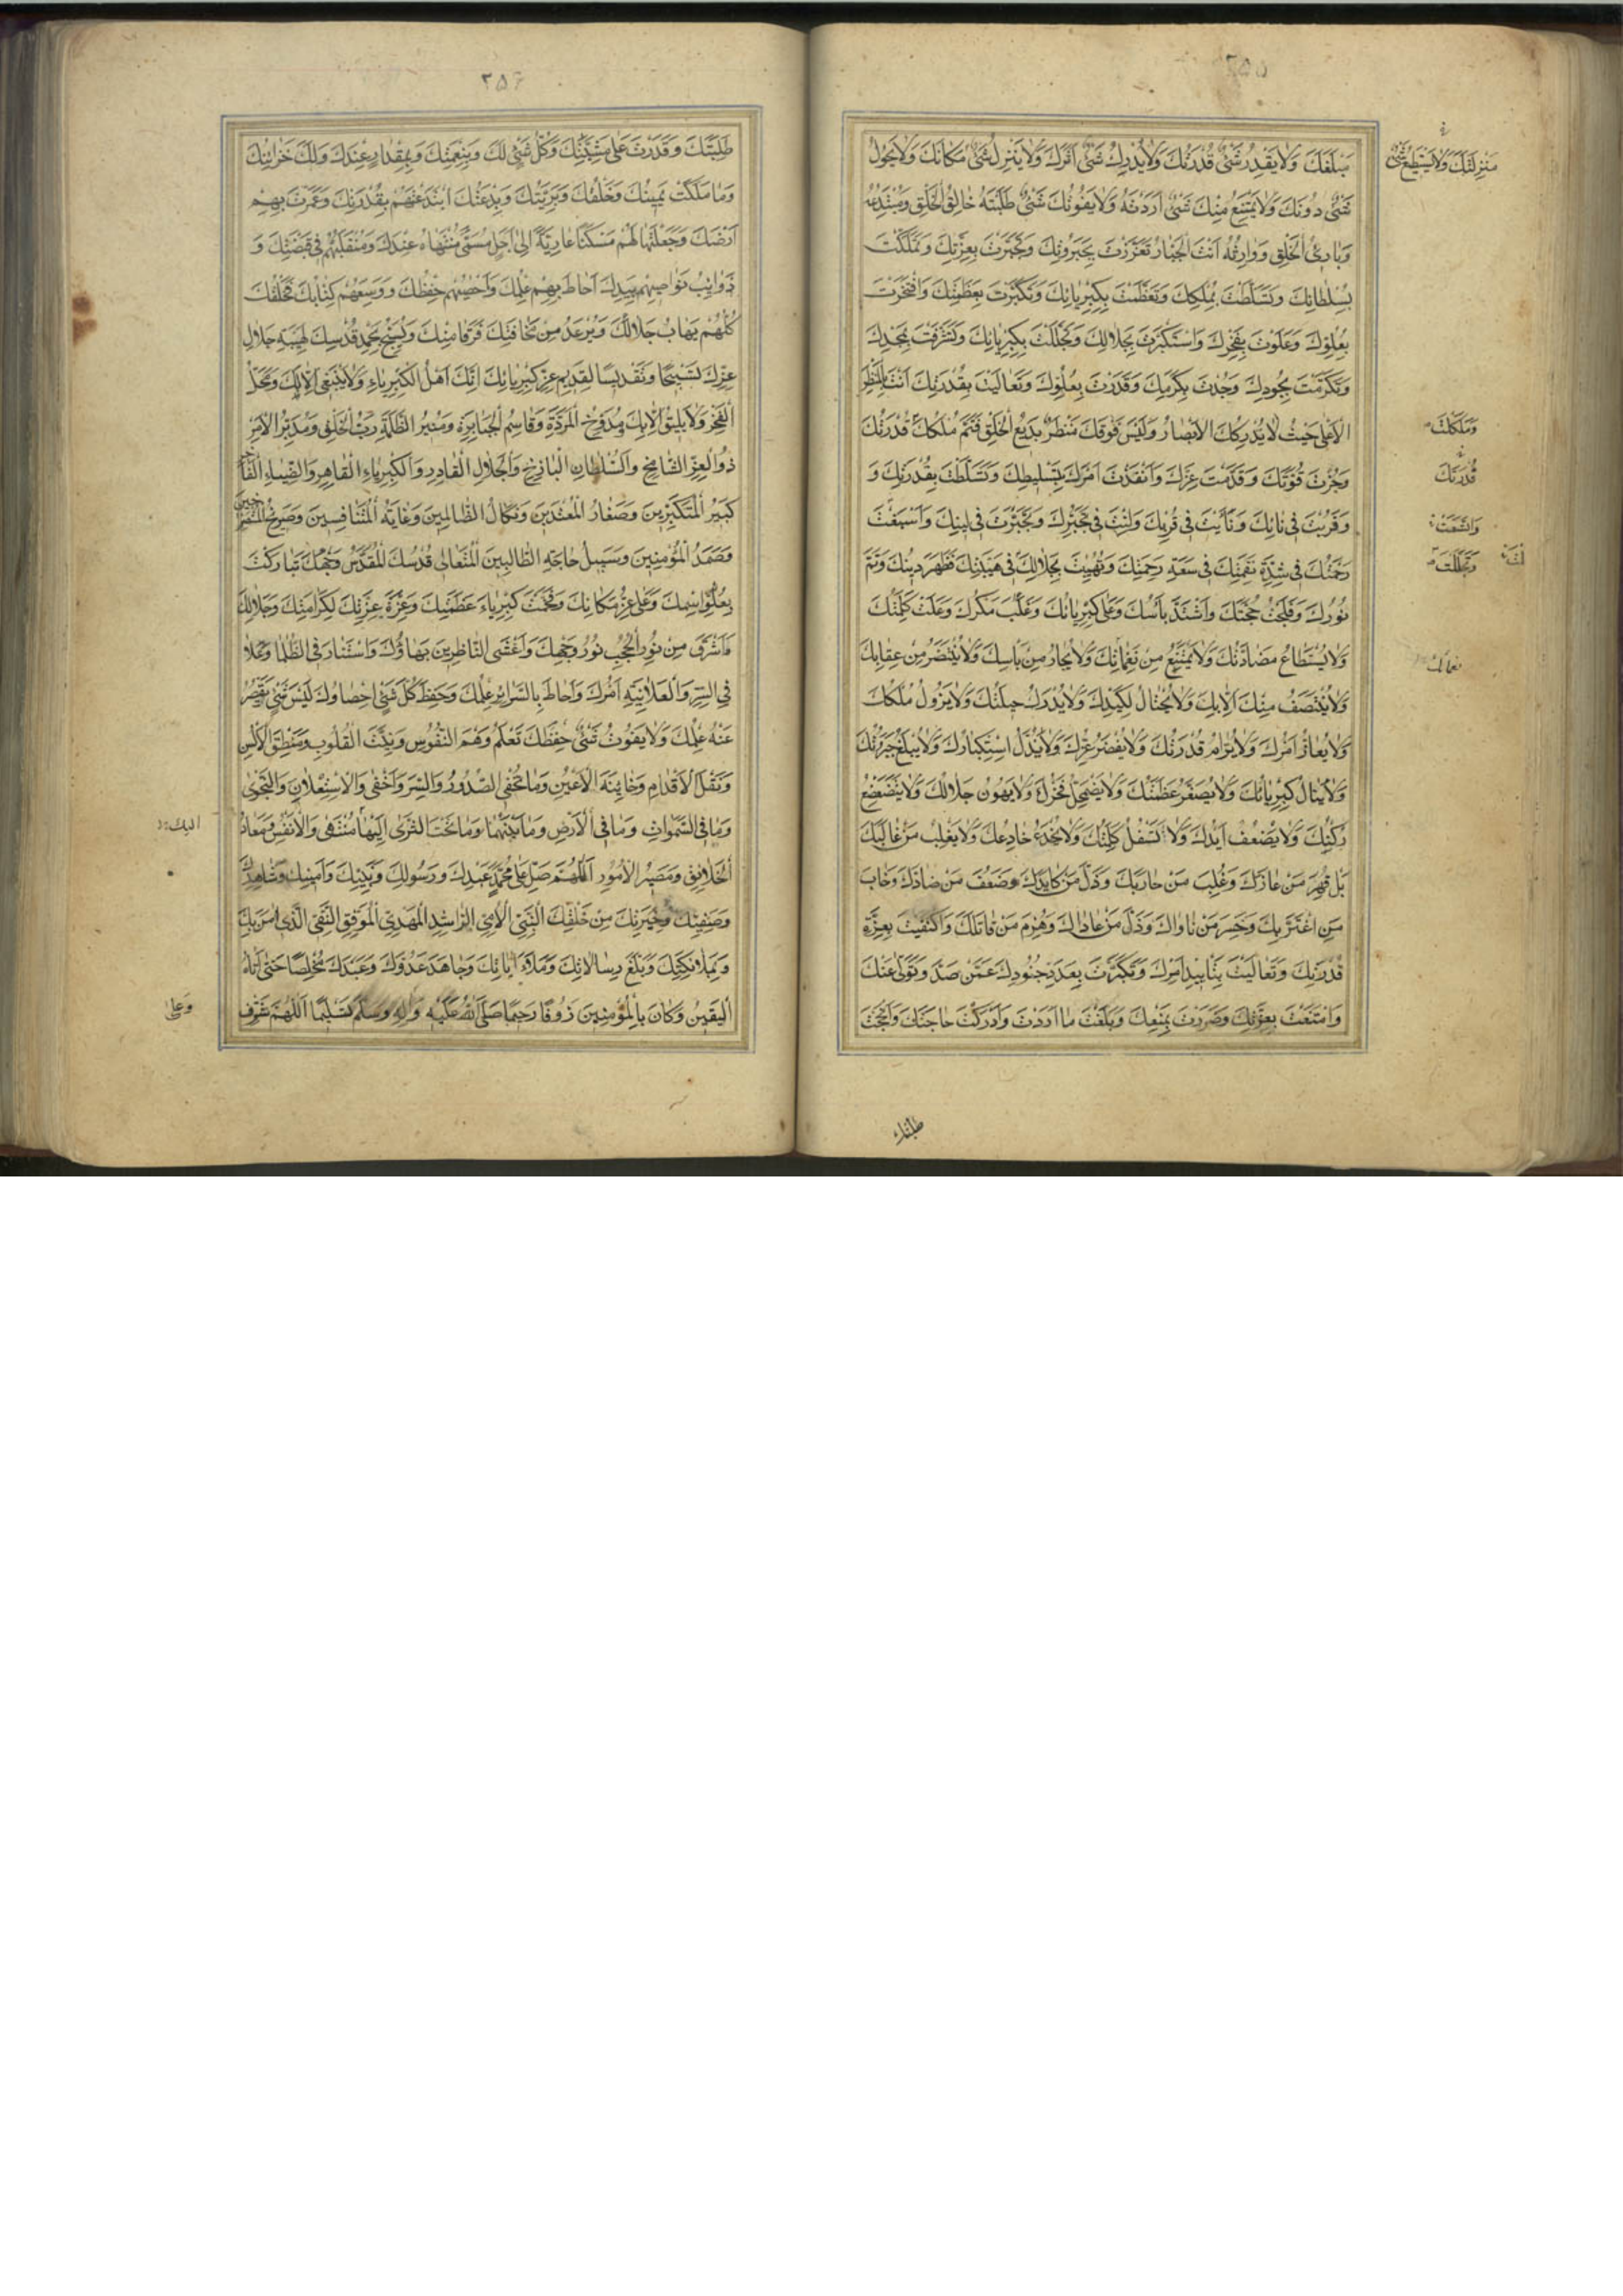 ٢٥٥
مَبْلَغَكَ وَلَا يَقْدِرُ شَيْءٌ قُدْرَتَكَ وَلَا يُدْرِكُ شَيْءٌ اَثَرَكَ وَلَا يَنْزِلُ شَيْءٌ مَكَانَكَ وَلَا يَحُولُ
شَيْءٌ دُونَكَ وَلَا يَمْتَنِعُ مِنْكَ شَيْءٌ اَرَدْتَهُ وَلَا يَفُوتُكَ شَيْءٌ طَلَبْتَهُ خَالِقُ الْخَلْقِ وَمُبْتَدِعُهُ
وَبَارِئُ الْخَلْقِ وَوَارِثُهُ اَنْتَ الْجَبَّارُ تَعَزَّزْتَ بِجَبَرُوتِكَ وَتَجَبَّرْتَ بِعِزَّتِكَ وَتَمَلَّكْتَ
بِسُلْطَانِكَ وَتَسَلَّطْتَ بِمُلْكِكَ وَتَعَظَّمْتَ بِكِبْرِيَائِكَ وَتَكَبَّرْتَ بِعَظَمَتِكَ وَافْتَخَرْتَ
بِعُلُوِّكَ وَعَلَوْتَ بِفَخْرِكَ وَاسْتَكْبَرْتَ بِجَلَالِكَ وَتَجَلَّلْتَ بِكِبْرِيَائِكَ وَتَشَرَّفْتَ بِمَجْدِكَ
وَتَكَرَّمْتَ بِجُودِكَ وَجُدْتَ بِكَرَمِكَ وَقَدَرْتَ بِعُلُوِّكَ وَتَعَالَيْتَ بِقُدْرَتِكَ اَنْتَ بِالْمَنْظَرِ
الْاَعْلَى حَيْثُ لَا يُدْرِكُكَ الْاَبْصَارُ وَلَيْسَ فَوْقَكَ مَنْظَرٌ بَدِيعُ الْخَلْقِ فَتَمَّ مُلْكُكَ قُدْرَتُكَ
وَجُزْتَ قُوَّتَكَ وَقَدَّمْتَ عِزَّكَ وَاَنْفَذْتَ اَمْرَكَ بِتَسْلِيطِكَ وَتَسَلَّطْتَ بِقُدْرَتِكَ وَ
وَقَرُبْتَ فِي نَأْيِكَ وَنَأَيْتَ فِي قُرْبِكَ وَلِنْتَ فِي تَجَبُّرِكَ وَتَجَبَّرْتَ فِي لِينِكَ وَاتَّسَعَتْ
رَحْمَتُكَ فِي شِدَّةِ نَقِمَتِكَ فِي سَعَةِ رَحْمَتِكَ وَتَهَيَّبْتَ بِجَلَالِكَ فِي هَيْبَتِكَ فَظَهَرَ دِينُكَ وَتَمَّ
نُورُكَ وَفَلَجَتْ حُجَّتُكَ وَاشْتَدَّ بَأْسُكَ وَعَلَى كِبْرِيَائُكَ وَغَلَبَ مَكْرُكَ وَعَلَتْ كَلِمَتُكَ
وَلَا يُسْتَطَاعُ مُضَادَّتُكَ وَلَا يُمْتَنَعُ مِنْ نَقِمَاتِكَ وَلَا يُجَارُ مِنْ بَأْسِكَ وَلَا يُنْتَصَرُ مِنْ عِقَابِكَ
وَلَا يُنْتَصَفُ مِنْكَ اِلَّا بِكَ وَلَا يُحْتَالُ لِكَيْدِكَ وَلَا يُدْرَكُ حِيلَتُكَ وَلَا يَزُولُ مُلْكُكَ
وَلَا يُعَازُّ اَمْرُكَ وَلَا يُرَامُ قُدْرَتُكَ وَلَا يَقْصُرُ عِزُّكَ وَلَا يُذَلُّ اسْتِكْبَارُكَ وَلَا يُبْلَغُ جَبَرُوتُكَ
وَلَا يُنَالُ كِبْرِيَائُكَ وَلَا يَصْغُرُ عَظَمَتُكَ وَلَا يَضْمَحِلُّ فَخْرُكَ وَلَا يَهُونُ جَلَالُكَ وَلَا يَتَضَعْضَعُ
رُكْنُكَ وَلَا يَضْعُفُ اَيْدُكَ وَلَا تَسْفُلُ كَلِمَتُكَ وَلَا يُخْدَعُ خَادِعُكَ وَلَا يَغْلِبُ مَنْ غَالَبَكَ
بَلْ قُهِرَ مَنْ عَازَّكَ وَغُلِبَ مَنْ حَارَبَكَ وَذَلَّ مَنْ كَايَدَكَ وَضَعُفَ مَنْ ضَادَّكَ وَخَابَ
مَنِ اغْتَرَّ بِكَ وَخَسِرَ مَنْ نَاوَاكَ وَذَلَّ مَنْ عَادَاكَ وَهُزِمَ مَنْ قَاتَلَكَ وَاكْتَفَيْتَ بِعِزَّةِ
قُدْرَتِكَ وَتَعَالَيْتَ بِتَأْيِيدِ اَمْرِكَ وَتَكَبَّرْتَ بِعَدَدِ جُنُودِكَ عَمَّنْ صَدَّ وَتَوَلَّى عَنْكَ
وَامْتَنَعْتَ بِعِزَّتِكَ وَبَلَغْتَ مَا اَرَدْتَ وَاَدْرَكْتَ حَاجَتَكَ وَاَنْجَحْتَ
مَنْزِلَتَكَ وَلَا يَسْتَطِيعُ شَيْءٌ
وَمَلَكْتَ
قُدْرَتَكَ
وَاتَّسَعَتْ
وَتَجَلَّلْتَ
طلبتك
٢٥٦
طَلِبَتَكَ وَقَدَرْتَ عَلَى مَشِيَّتِكَ وَكُلُّ شَيْءٍ لَكَ وَبِنِعْمَتِكَ وَبِمِقْدَارٍ عِنْدَكَ وَلَكَ خَزَائِنُكَ
وَمَا مَلَكَتْ يَمِينُكَ وَخَلْقُكَ وَبَرِيَّتُكَ وَبِدْعَتُكَ ابْتَدَعْتَهُمْ بِقُدْرَتِكَ وَعَمَّرْتَ بِهِمْ
اَرْضَكَ وَجَعَلْتَهَا لَهُمْ مَسْكَنًا عَارِيَّةً اِلَى اَجَلٍ مُسَمًّى مُنْتَهَاهُ عِنْدَكَ وَمُنْقَلَبُهُمْ فِي قَبْضَتِكَ وَ
ذَوَائِبُ نَوَاصِيهِمْ بِيَدِكَ اَحَاطَ بِهِمْ عِلْمُكَ وَاَحْصَاهُمْ حِفْظُكَ وَوَسِعَهُمْ كِتَابُكَ فَخَلْقُكَ
كُلُّهُمْ يَهَابُ جَلَالَكَ وَيَرْعَدُ مِنْ مَخَافَتِكَ فَرَقًا مِنْكَ وَيُسَبِّحُ بِحَمْدِ قُدْسِكَ لِهَيْبَةِ جَلَالِ
عِزِّكَ تَسْبِيحًا وَتَقْدِيسًا لِقَدِيمِ عِزِّ كِبْرِيَائِكَ اِنَّكَ اَهْلُ الْكِبْرِيَاءِ وَلَا يَنْبَغِي اِلَّا لَكَ وَمَحَلُّ
الْفَخْرِ وَلَا يَلِيقُ اِلَّا بِكَ مُدَوِّخُ الْمَرَدَةِ وَقَاصِمُ الْجَبَابِرَةِ وَمُبِيرُ الظَّلَمَةِ رَبُّ الْخَلْقِ وَمُدَبِّرُ الْاَمْرِ
ذُو الْعِزِّ الشَّامِخِ وَالسُّلْطَانِ الْبَاذِخِ وَالْجَلَالِ الْقَادِرِ وَالْكِبْرِيَاءِ الْقَاهِرِ وَالضِّيَاءِ الْفَاخِرِ
كَبِيرُ الْمُتَكَبِّرِينَ وَصَغَارُ الْمُعْتَدِينَ وَنَكَالُ الظَّالِمِينَ وَغَايَةُ الْمُتَنَافِسِينَ وَصَرِيخُ الْمُسْتَصْرِخِينَ
وَصَمَدُ الْمُؤْمِنِينَ وَسَبِيلُ حَاجَةِ الطَّالِبِينَ الْمُتَعَالِي قُدْسُكَ الْمُقَدَّسُ وَجْهُكَ تَبَارَكْتَ
بِعُلُوِّ اسْمِكَ وَعَلَى عِزُّ مَكَانِكَ وَفَخُمَتْ كِبْرِيَاءُ عَظَمَتِكَ وَعِزَّةُ عِزَّتِكَ لِكَرَامَتِكَ وَجَلَالِكَ
فَاَشْرَقَ مِنْ نُورِ الْحُجُبِ نُورُ وَجْهِكَ وَاَغْشَى النَّاظِرِينَ بَهَاؤُكَ وَاسْتَنَارَ فِي الظُّلَمِ وَعَلَا
فِي السِّرِّ وَالْعَلَانِيَةِ اَمْرُكَ وَاَحَاطَ بِالسَّرَائِرِ عِلْمُكَ وَحَفِظَ كُلَّ شَيْءٍ اِحْصَاؤُكَ لَيْسَ شَيْءٌ يَقْصُرُ
عَنْهُ عِلْمُكَ وَلَا يَفُوتُ شَيْءٌ حِفْظَكَ تَعْلَمُ وَهْمَ النُّفُوسِ وَنِيَّةَ الْقُلُوبِ وَمَنْطِقَ الْاَلْسُنِ
وَنَقْلَ الْاَقْدَامِ وَخَائِنَةَ الْاَعْيُنِ وَمَا تُخْفِي الصُّدُورُ وَالسِّرَّ وَاَخْفَى وَالْاِسْتِعْلَانَ وَالنَّجْوَى
وَمَا فِي السَّمٰوَاتِ وَمَا فِي الْاَرْضِ وَمَا بَيْنَهُمَا وَمَا تَحْتَ الثَّرَى اِلَيْهَا مُنْتَهَى الْاَنْفُسِ وَمَعَادُ
الْخَلَائِقِ وَمَصِيرُ الْاُمُورِ اَللّٰهُمَّ صَلِّ عَلَى مُحَمَّدٍ عَبْدِكَ وَرَسُولِكَ وَنَبِيِّكَ وَاَمِينِكَ وَشَاهِدِكَ
وَصَفِيِّكَ وَخِيَرَتِكَ مِنْ خَلْقِكَ النَّبِيِّ الْاُمِّيِّ الرَّاشِدِ الْمَهْدِيِّ الْمُوَفَّقِ التَّقِيِّ الَّذِي اٰمَنَ بِكَ
وَبِمَلَائِكَتِكَ وَبَلَّغَ رِسَالَاتِكَ وَتَلَا اٰيَاتِكَ وَجَاهَدَ عَدُوَّكَ وَعَبَدَكَ مُخْلِصًا حَتَّى اَتَاهُ
الْيَقِينُ وَكَانَ بِالْمُؤْمِنِينَ رَؤُفًا رَحِيمًا صَلَّى اللّٰهُ عَلَيْهِ وَاٰلِهِ وَسَلَّمَ تَسْلِيمًا اَللّٰهُمَّ شَرِّفْ
اليك
وَعَلَى